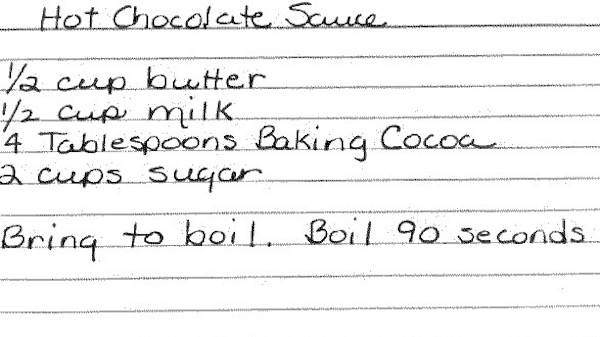 Hot Chocolate Sauce
1/2 cup butter
1/2 cup milk
4 Tablespoons Baking Cocoa
2 cups sugar
Bring to boil. Boil 90 seconds